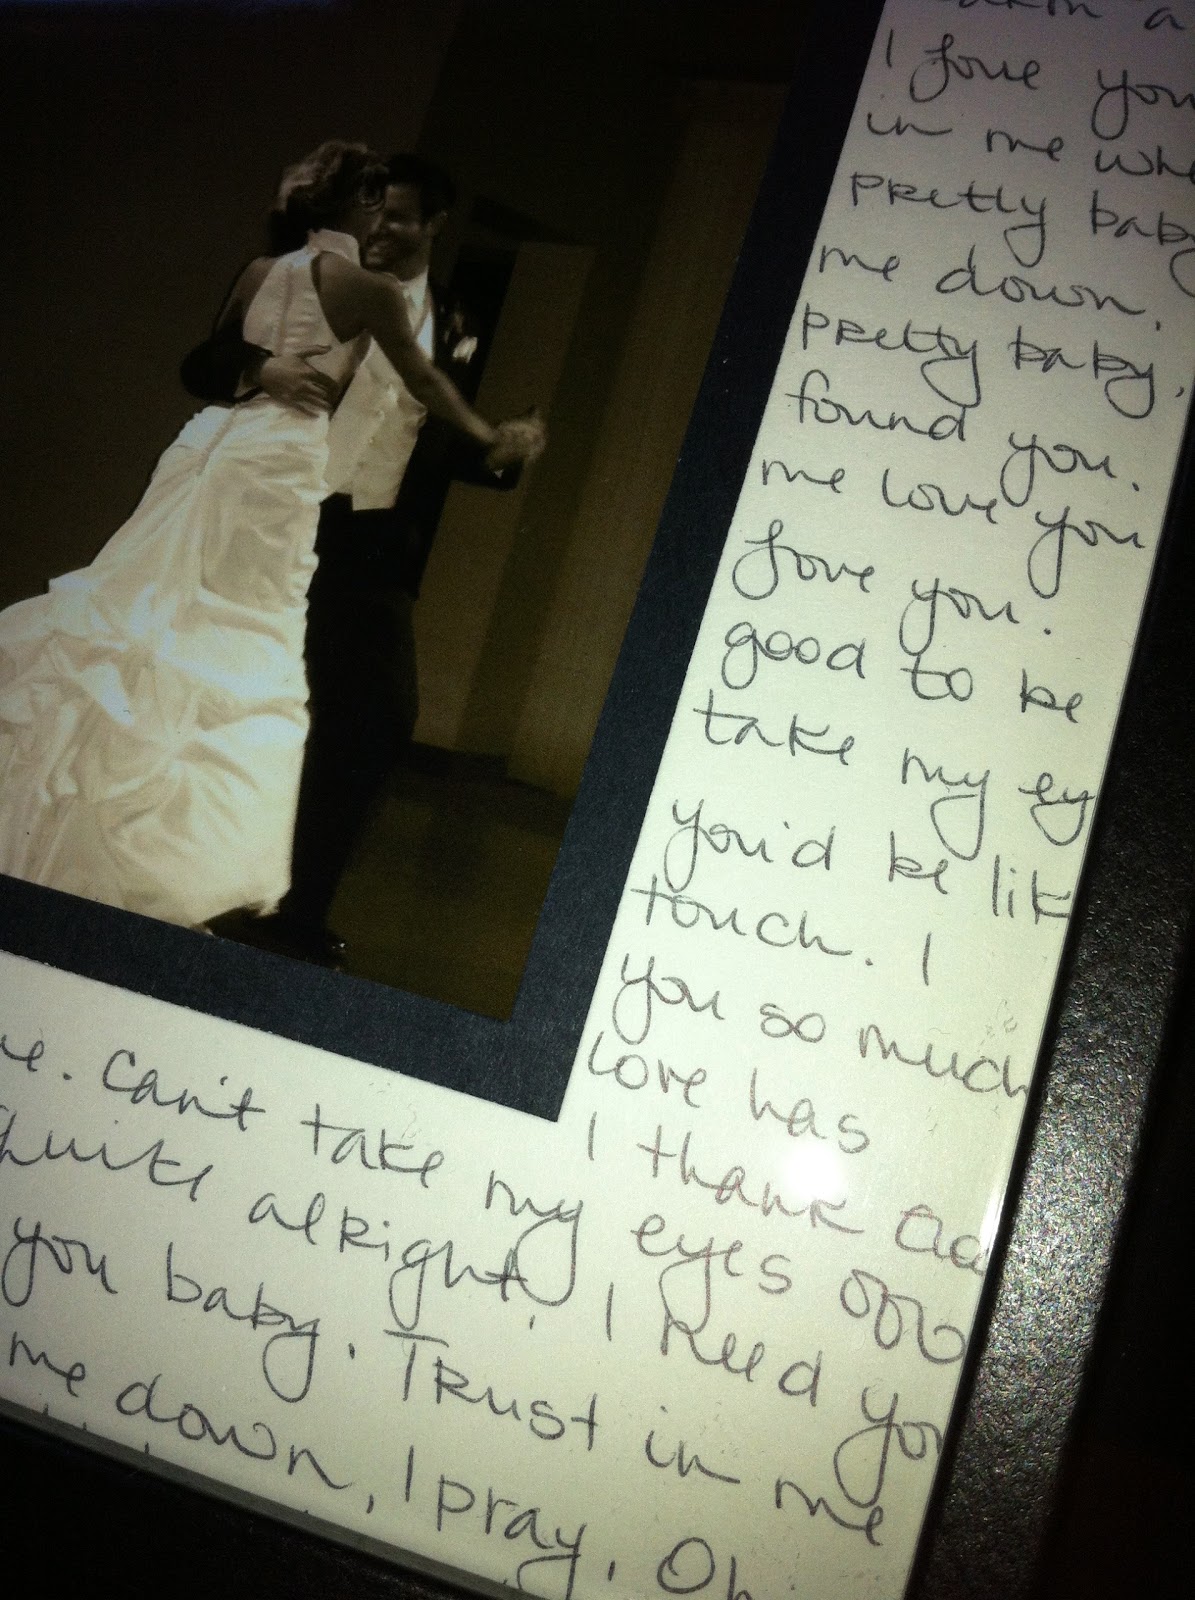 a
I love you
in me whe
pretty baby
me down,
pretty baby,
found you.
me love you
love you.
good to be
take my ey
you'd be lik
touch. I
you so much
love has
I thank Go
e. Can't take my eyes off
quite alright, I need you
you baby. Trust in me
me down, I pray. Oh